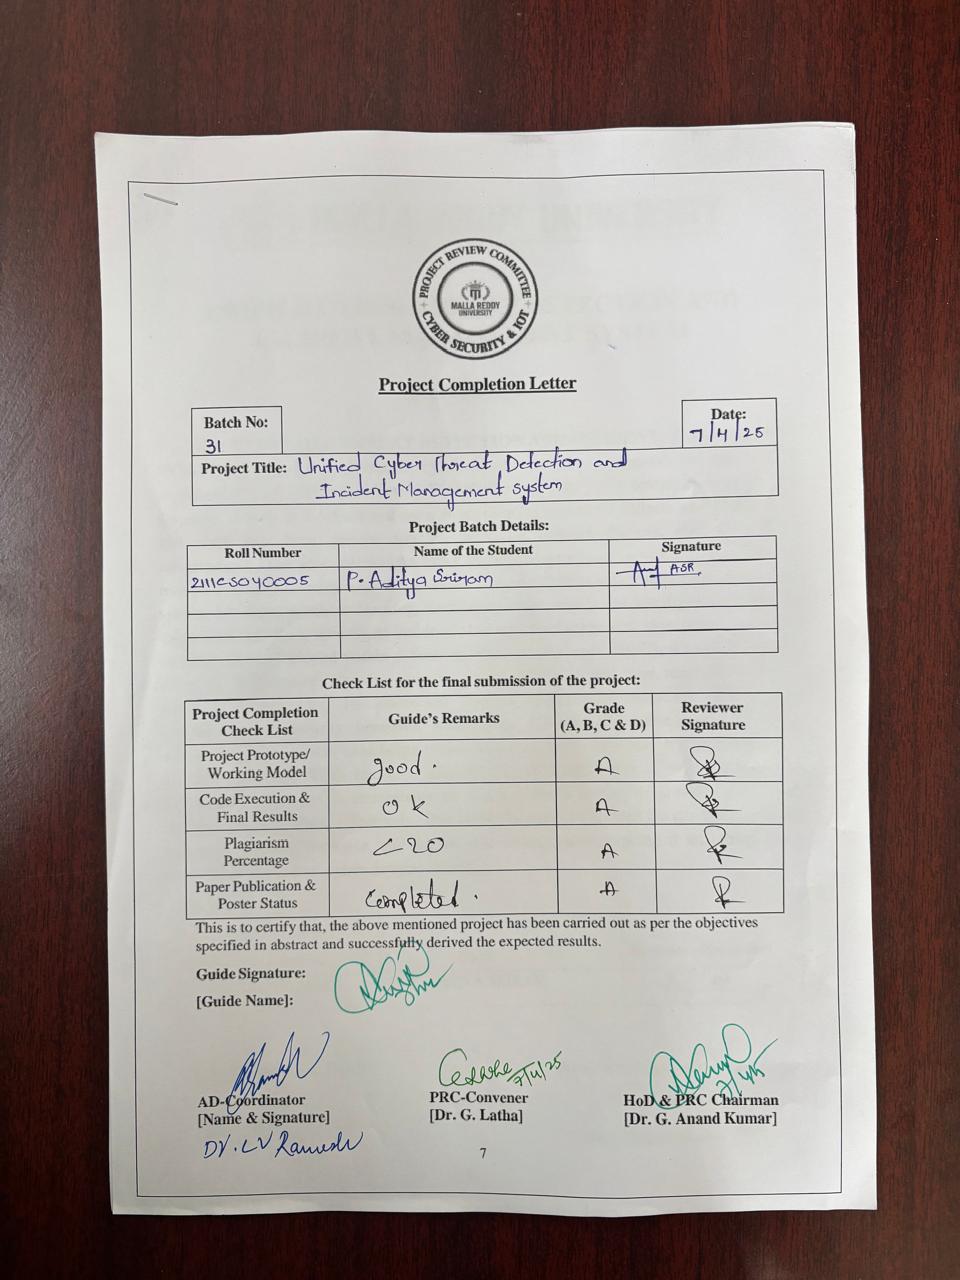 PROJECT REVIEW COMMITTEE
MALLA REDDY
UNIVERSITY
CYBER SECURITY & IOT
Project Completion Letter
Batch No:
31
Date:
7/4/25
Project Title: Unified Cyber Threat Detection and
Incident Management system
Project Batch Details:
Roll Number Name of the Student Signature
2111CS040005 P. Aditya Sriram ASR
Check List for the final submission of the project:
Project Completion Check List Guide's Remarks Grade (A, B, C & D) Reviewer Signature
Project Prototype/ Working Model good. A
Code Execution & Final Results ok A
Plagiarism Percentage <20 A
Paper Publication & Poster Status Completed. A
This is to certify that, the above mentioned project has been carried out as per the objectives
specified in abstract and successfully derived the expected results.
Guide Signature:
[Guide Name]:
7/4/25
7/4/25
AD-Coordinator PRC-Convener HoD & PRC Chairman
[Name & Signature] [Dr. G. Latha] [Dr. G. Anand Kumar]
Dr. LV Ramesh
7